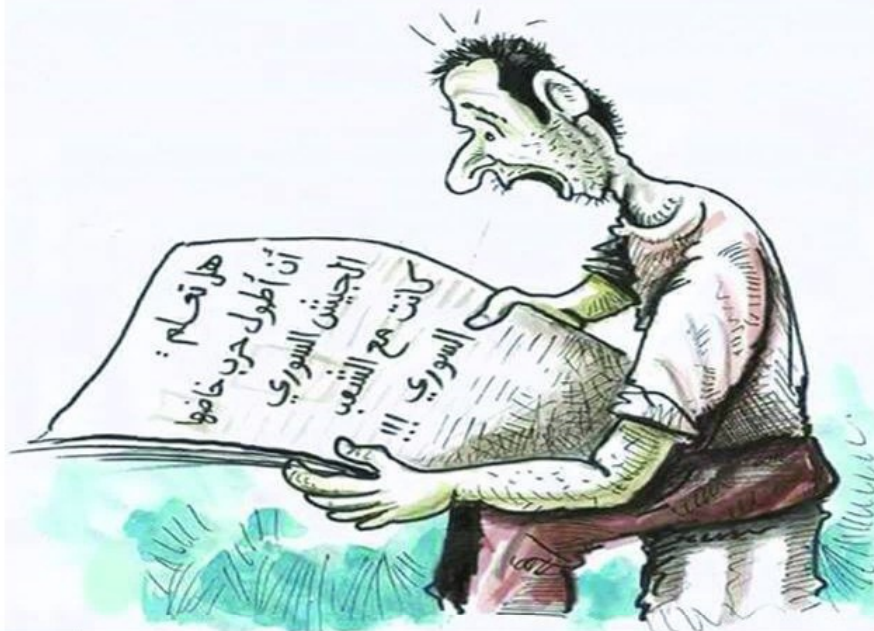 هل تعلم :
أن أطول حرب خاضها
الجيش السوري
كانت مع الشعب
السوري !!!